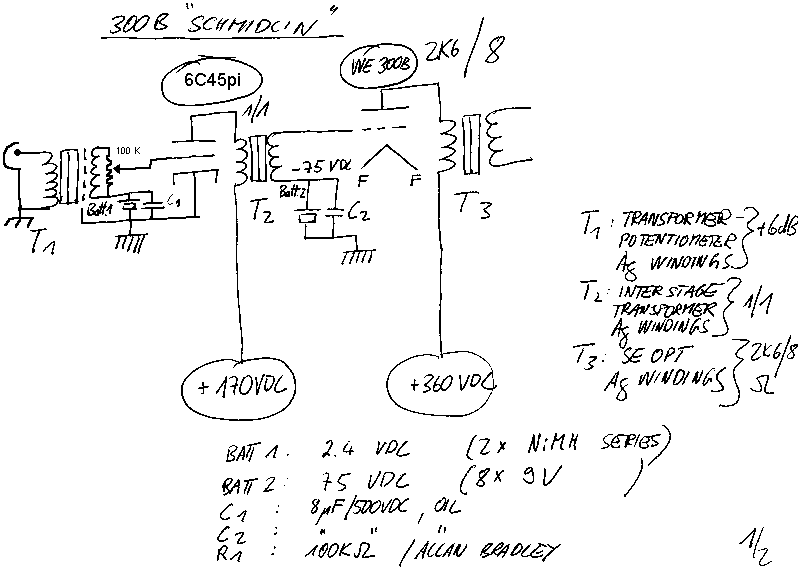 300B "SCHMIDLIN"
6C45pi
WE 300B
2K6/8
1/1
100 K
-75 VDC
Batt1
C1
Batt2
C2
F F
T1
T2
T3
T1: TRANSFORMER
POTENTIOMETER
Ag WINDINGS
+6dB
T2: INTERSTAGE
TRANSFORMER
Ag WINDINGS
1/1
T3: SE OPT
Ag WINDINGS
2K6/8
Ω
+170VDC
+360VDC
BATT 1: 2.4 VDC (2x NiMH SERIES)
BATT 2: 75 VDC (8x 9V )
C1 : 8µF/500VDC, OIL
C2 : " "
R1 : 100KΩ /ALLAN BRADLEY
1/2